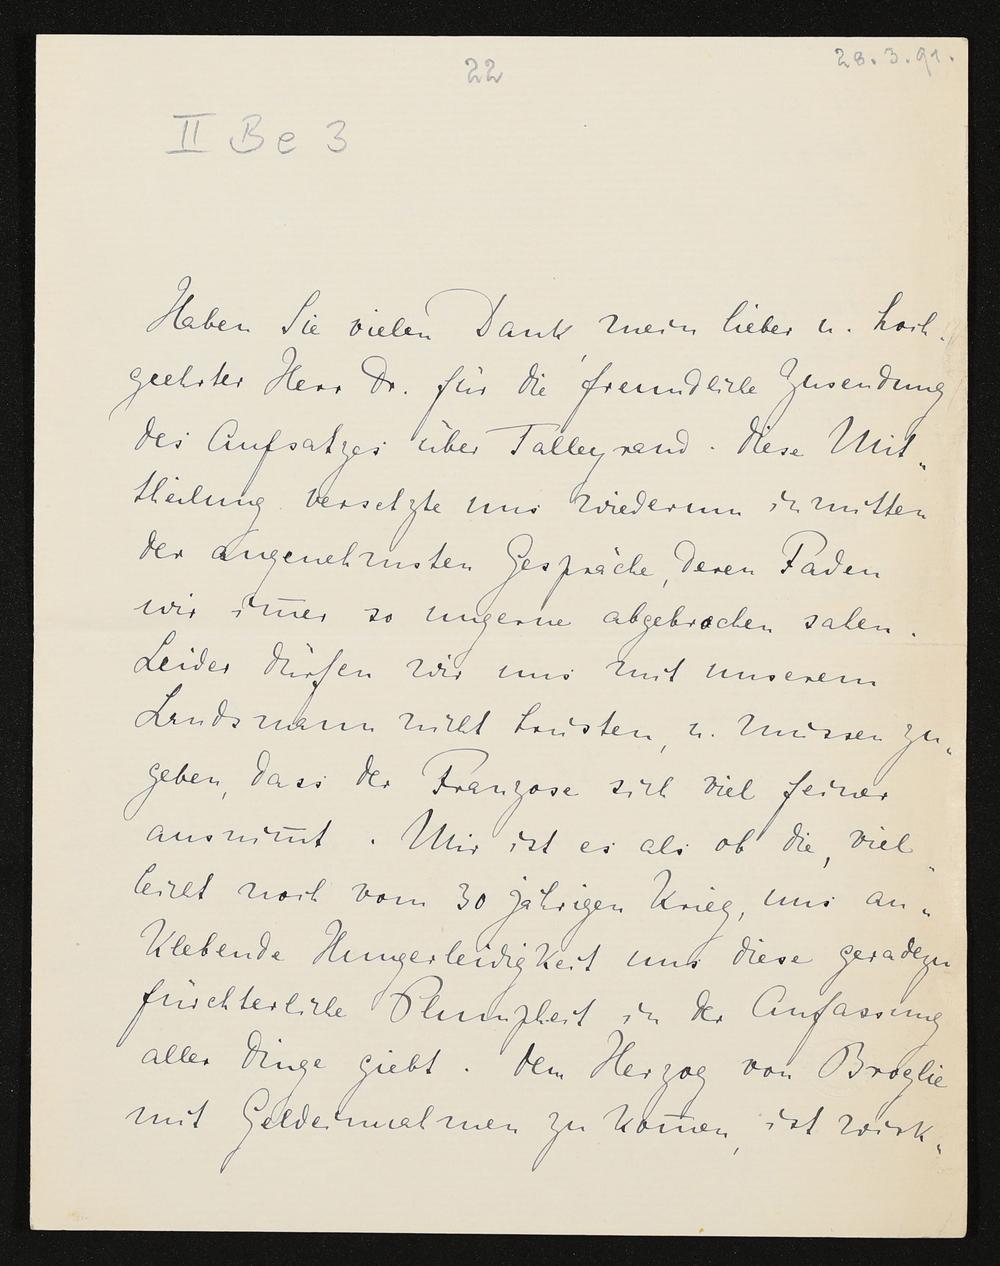 22
28.3.91.
II Be 3
Haben Sie vielen Dank, mein lieber u. hoch-
geehrter Herr Dr. für die freundliche Zusendung
des Aufsatzes über Talleyrand. Diese Mit-
theilung versetzte uns wiederum inmitten
der angenehmsten Gespräche, deren Faden
wir im̅er so ungerne abgebrochen sahen.
Leider dürfen wir uns mit unserem
Landsmann nicht brüsten, u. müssen zu-
geben, dass der Franzose sich viel feiner
ausnim̅t. Mir ist es als ob die, viel-
leicht noch vom 30 jährigen Krieg, uns an-
klebende Hungerleidigkeit uns diese geradezu
fürchterliche Plumpheit in der Auffassung
aller Dinge giebt. Dem Herzog von Broglie
mit Geldeinnahmen zu kom̅en, ist wirk-